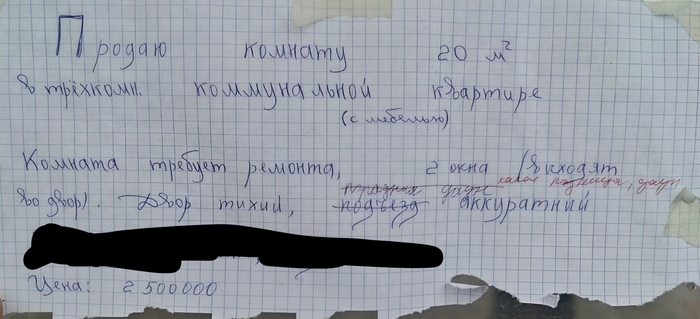 Продаю комнату 20 м²
в трёхкомн. коммунальной квартире
(с мебелью)
Комната требует ремонта, 2 окна (выходят
во двор). Двор тихий, подъезд аккуратний
Цена: 2 500000